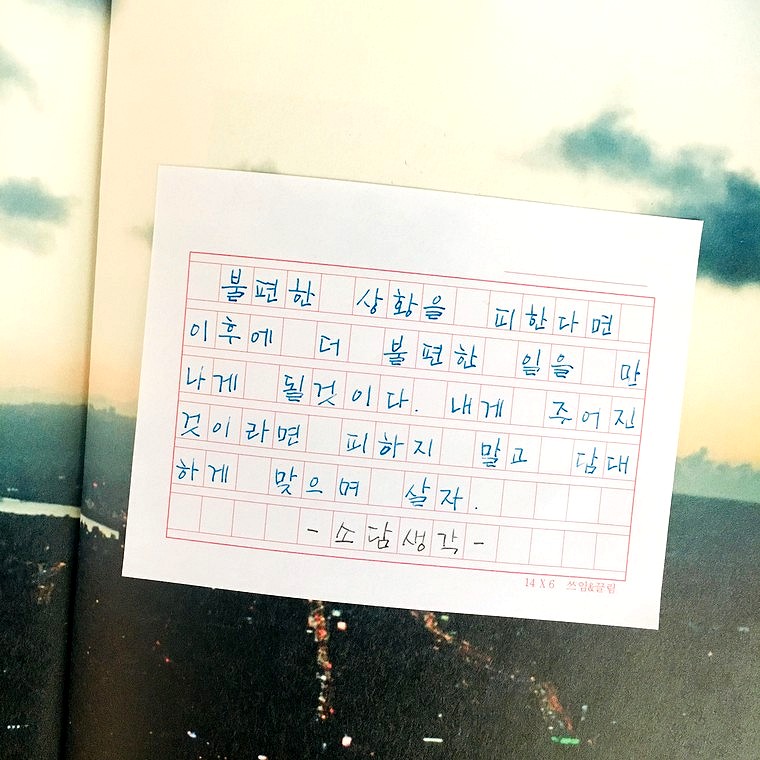 불편한 상황을 피한다면
이후에 더 불편한 일을 만
나게 될것이다. 내게 주어진
것이라면 피하지 말고 담대
하게 맞으며 살자.
- 소담생각 -
14 X 6 쓰임&끌림